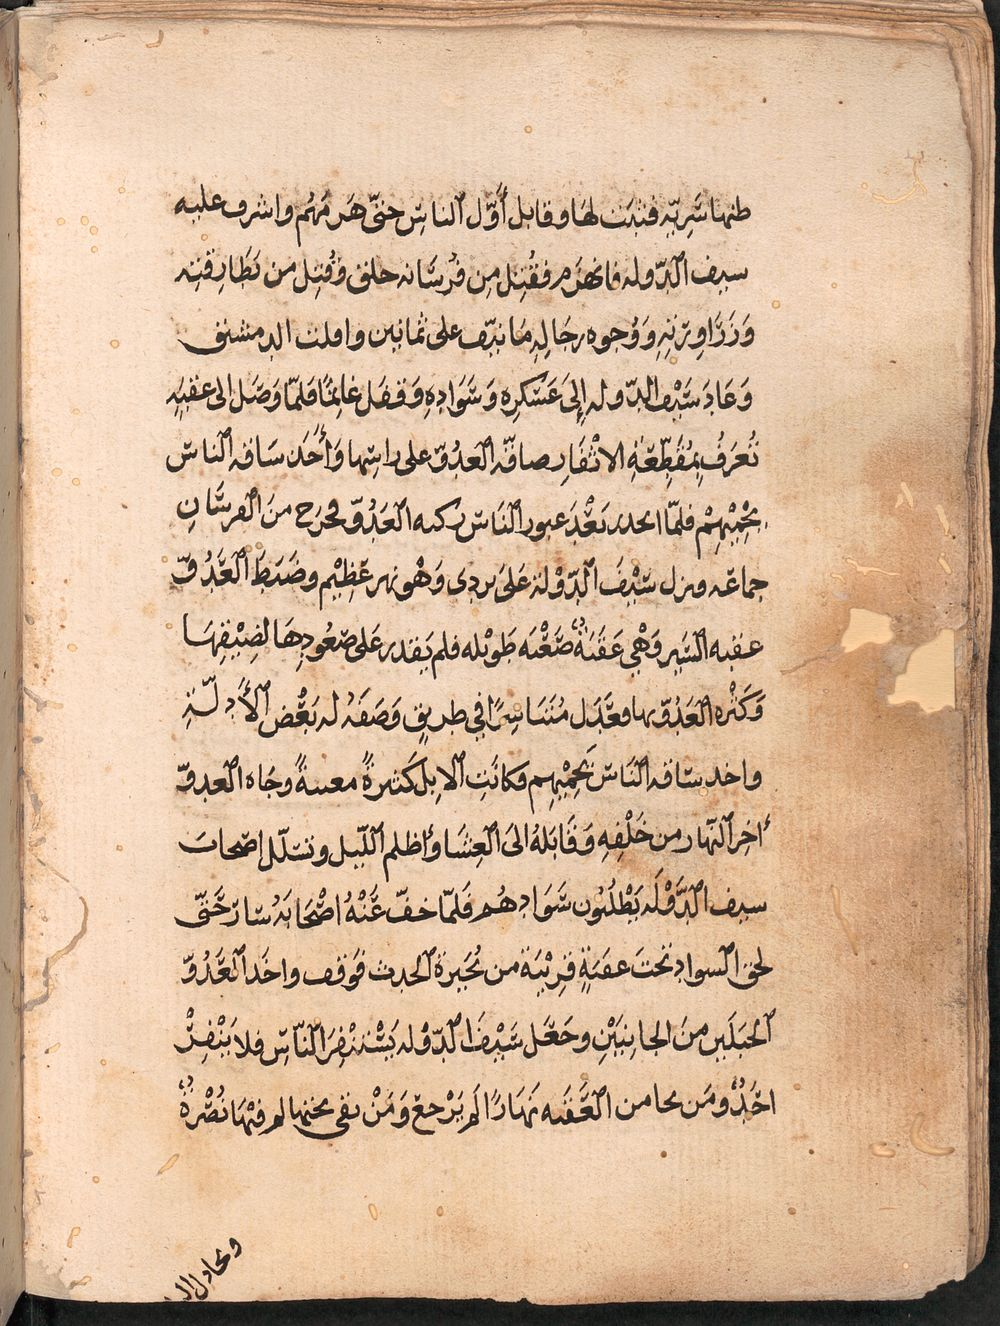 ظنها سَرِيّه فثبت لها وقاتل أوّل الناس حتّى هَزمهُم واشرف عليه
سيف الدّوله فانهزم فقُتِل مِن فُرسَانه خلق وقُتِل من بَطارِقتِه
وَزَرَاوِرَتِهِ وَوُجوه رجَالِهِ مَا نيّف على ثمانين وافلت الدمستق
وَعادَ سَيْف الدّوله إلىَ عَسْكرِهِ وَسَوَادِهِ وَقفل غانِمًا فلمّا وَصَل الى عقبَةٍ
تُعرَفُ بِمُقَطِّعَةِ الاثْفَارِ صافّه العَدُوّ على راسِها وَأخَذ سَاقه الناسَ
يحْمِيْهِمْ فلمّا انحدر بَعْدَ عبور النّاسِ ركبه العَدُوّ فجرَح منَ الفرسَانِ
جماعَه ونزل سَيْفُ الدّوْلة عَلىَ بردى وَهْو نهر عَظِيْم وضَبَطَ العَدُوّ
عقبه السِّيَر وَهْي عَقَبَةٌ صَعْبَه طَويْله فلم يَقدر عَلى صُعُودِهَا لضِيْقِهَا
وَكثْره العَدُوّ بها فعَدَل مُتَيَاسِرًا في طريقٍ وَصَفَهُ له بَعْض الأَدِلّةِ
واخذ ساقه النّاسَ يَحمِيْهِم وكانَتِ الابل كَثيْرةً معييةً وجَاه العدوّ
أخِرَ النّهار من خَلْفِهِ وَقَاتلهُ الىَ العِشَا وأظلم اللّيل وتسَلّل اصْحابَ
سيف الدَّوْله يَطْلُبُون سَوَادهُم فلمّا خفّ عَنْهُ اصْحَابَهُ سَارَ حَتّى
لحق السواد تحْتَ عقَبَةٍ قرِيْبَة من بُحَيرة الحدث فوَقف واخَذ العَدُوّ
الجبَلَين منَ الجانِبَيْنِ وجَعَل سَيْفُ الدّوْله يَسْتنْفِرَ النّاسَ فلا يَنْفِرُ
احَدٌ ومَن نجا من العَقَبه نَهَارًا لَم يَرْجعْ وَمَنْ بقى تحتها لم فيْهَا نُصْرَةٌ
وتخاذل ال